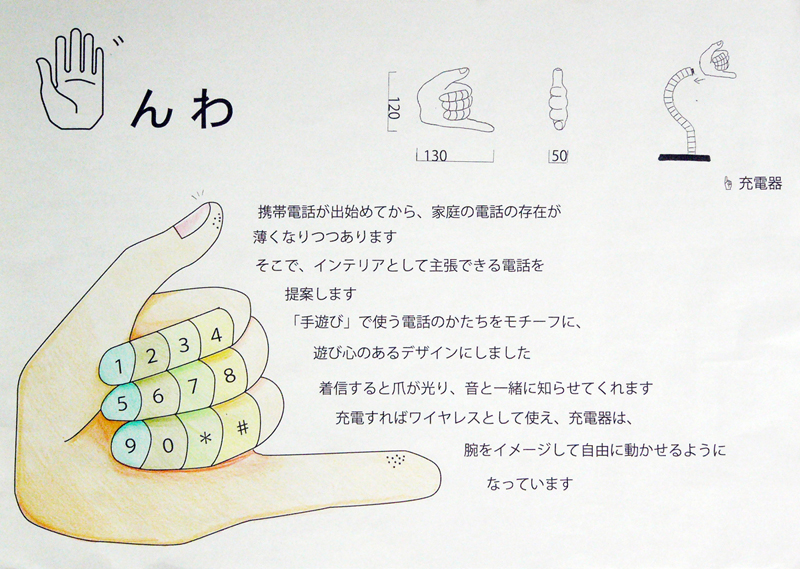 んわ
120
130
50
充電器
携帯電話が出始めてから、家庭の電話の存在が
薄くなりつつあります
そこで、インテリアとして主張できる電話を
提案します
「手遊び」で使う電話のかたちをモチーフに、
遊び心のあるデザインにしました
着信すると爪が光り、音と一緒に知らせてくれます
充電すればワイヤレスとして使え、充電器は、
腕をイメージして自由に動かせるように
なっています
1 2 3 4
5 6 7 8
9 0 * #